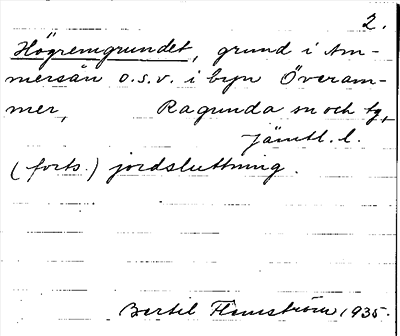 2.
Högremgrundet, grund i Am-
mersån o.s.v. i byn Överam-
mer, Ragunda sn och tg,
Jämtl. l.
(forts.) jordsluttning.
Bertil Flemström 1935.